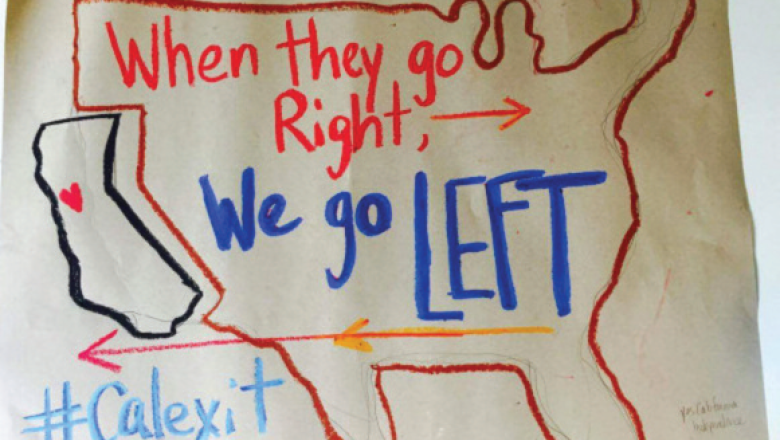 When they go
Right,
We go LEFT
#Calexit
Yes California
Independence